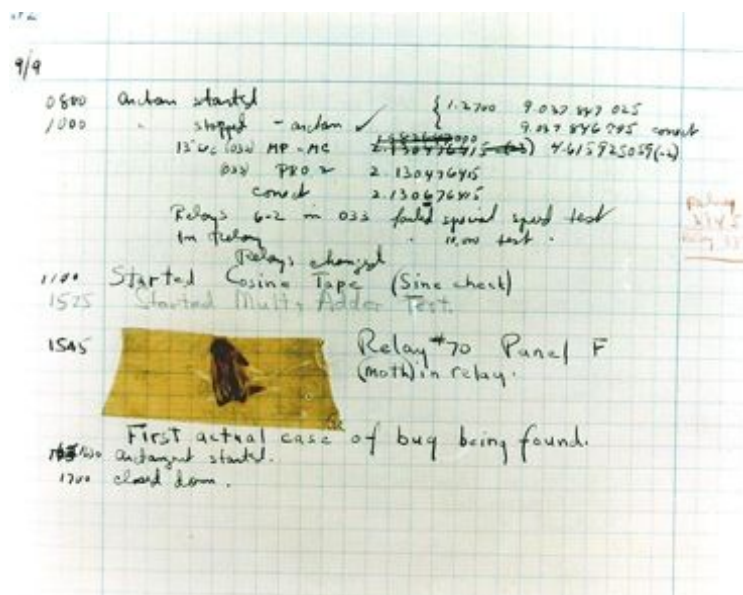 9/9
0800 antan started { 1.2700 9.037 847 025
1000 " stopped - antan ✓ 9.037 846 795 correct
13"uc (032) MP - MC 2.130476415 4.615925059(-2)
(033) PRO 2 2.130476415
correct 2.130676415
Relays 6-2 in 033 failed special speed test
in relay " 10,000 test .
Relays changed
1100 Started Cosine Tape (Sine check)
1525 Started Mult + Adder Test.
1545 Relay #70 Panel F
(moth) in relay.
First actual case of bug being found.
1630 antangent started.
1700 closed down .